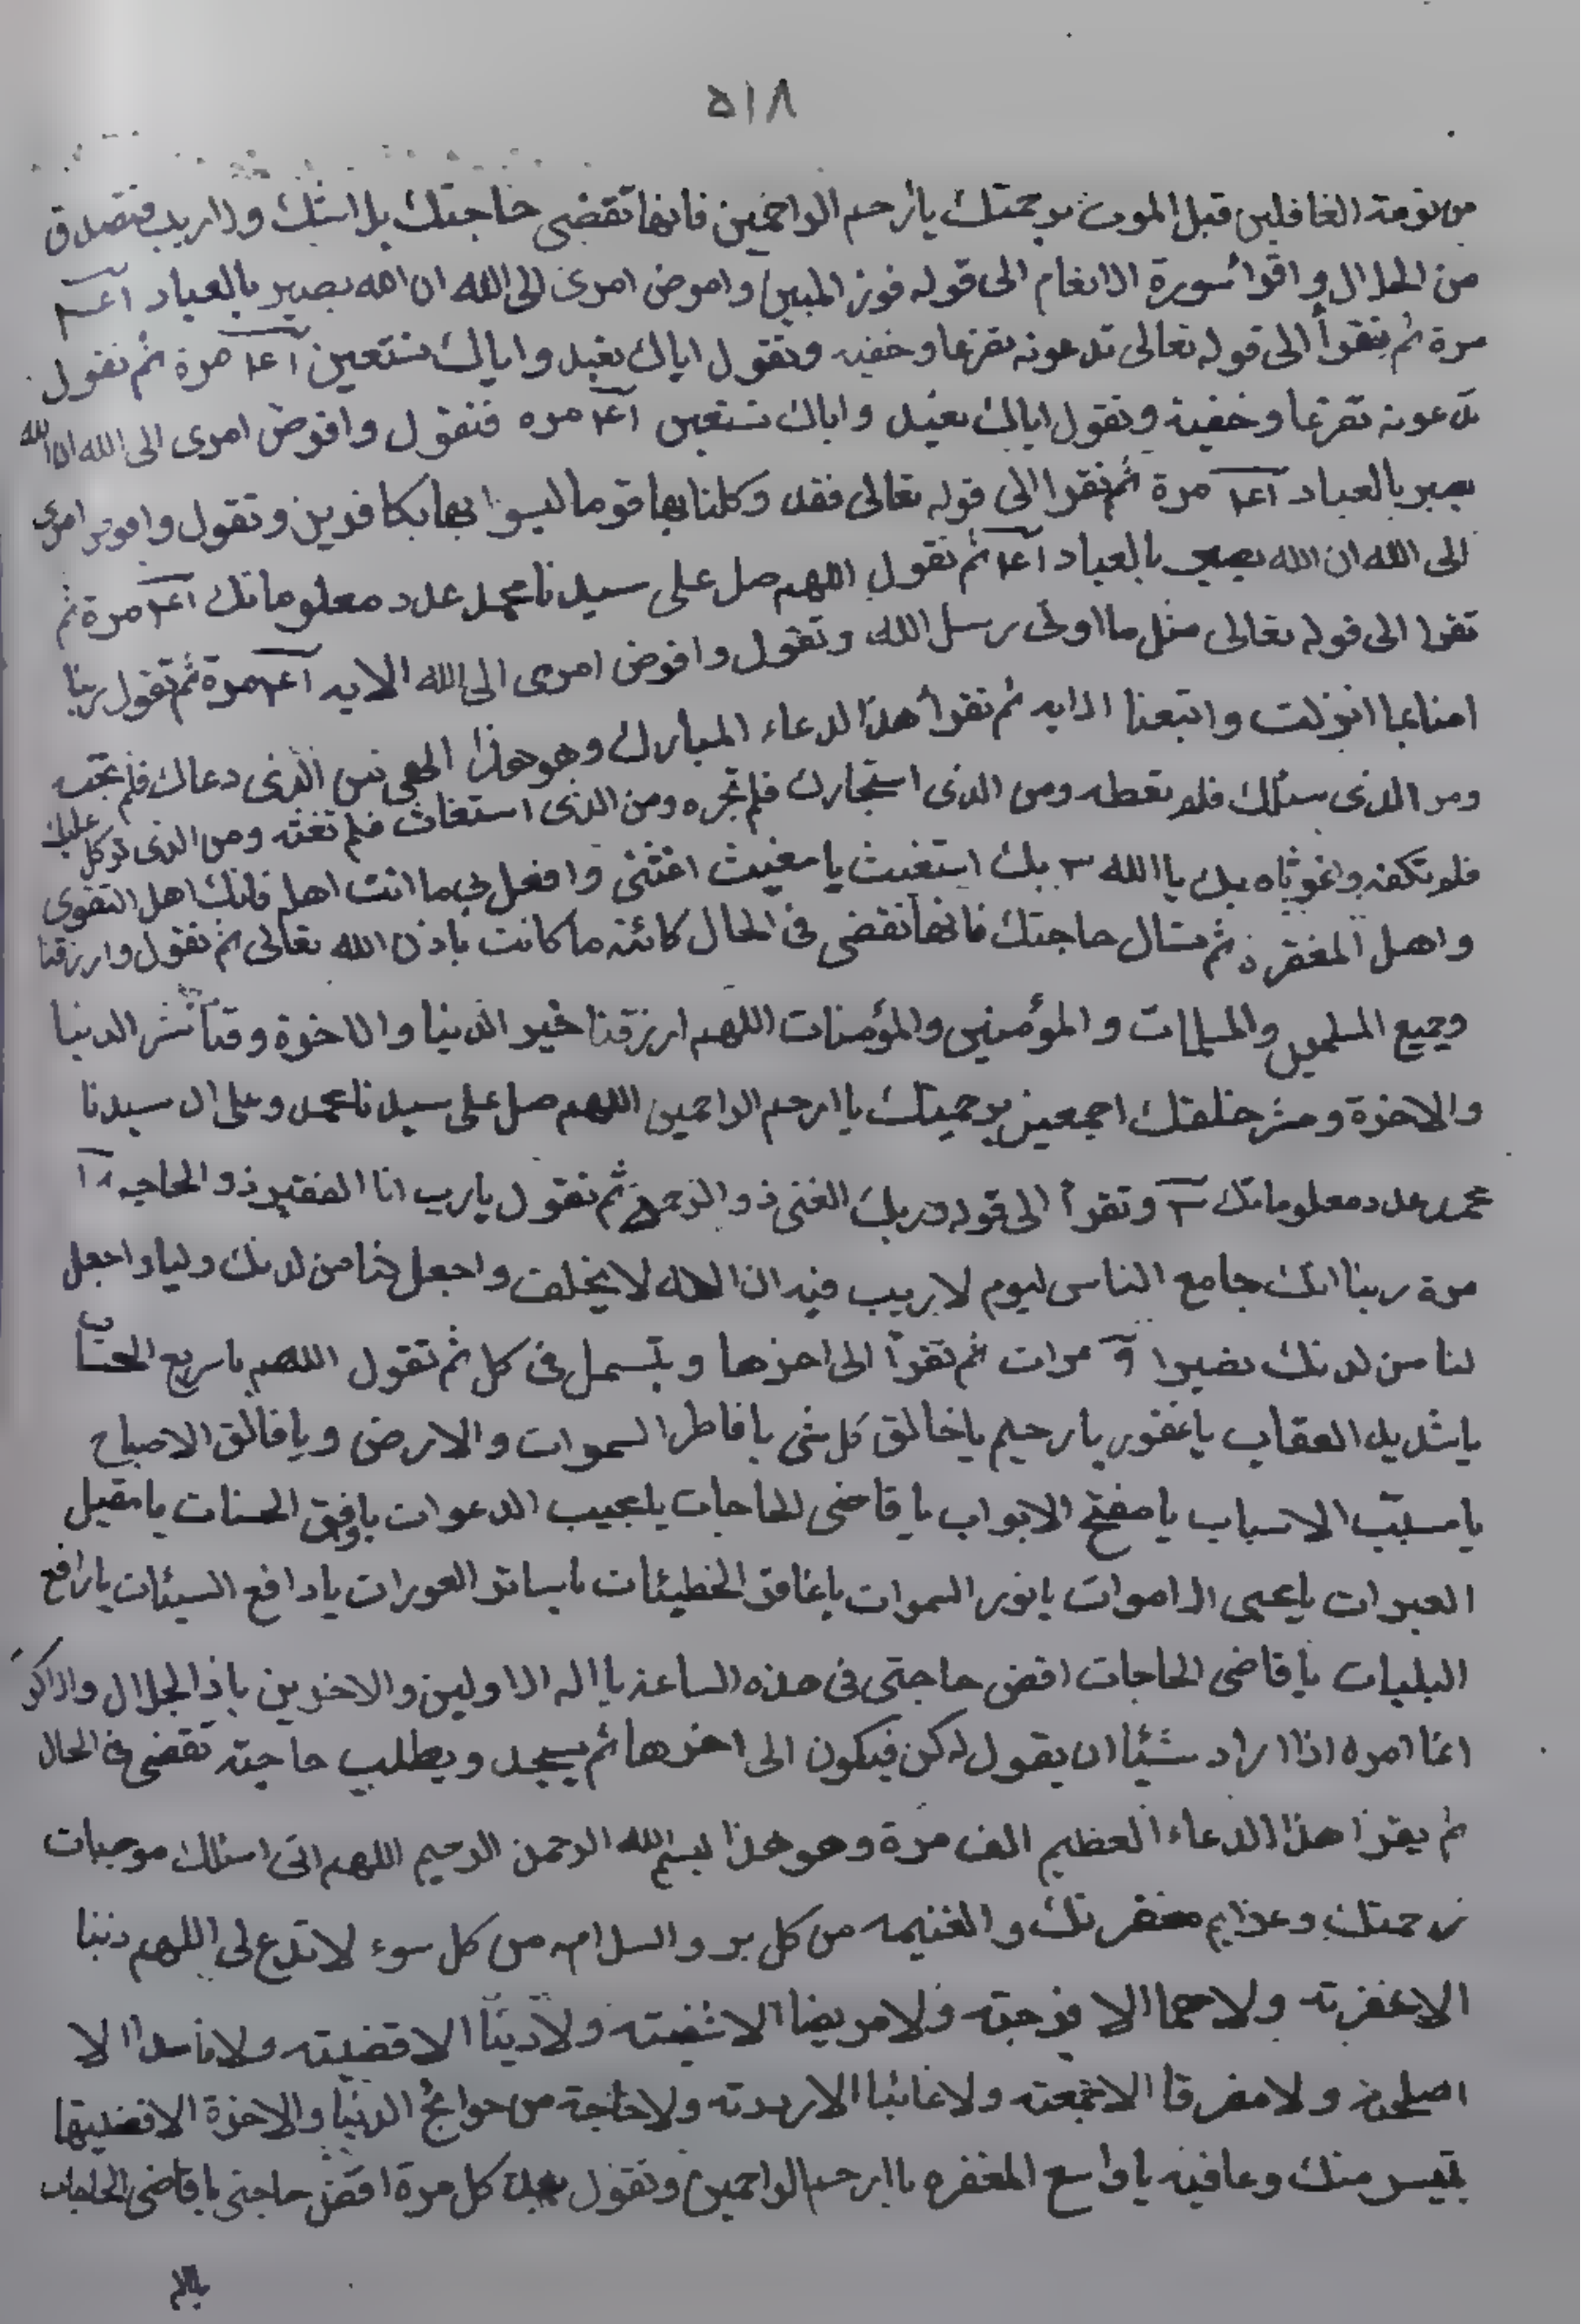 ٥١٨
من نومة الغافلين قبل الموت برحمتك يا أرحم الراحمين فانها تقضى حاجتك بلا شك ولا ريب فتصدق
من الحلال واقرأ سورة الانعام الى قوله فوز المبين وافوض امرى الى الله ان الله بصير بالعباد
مرة ثم تقرأ الى قوله تعالى تدعونه تضرعا وخفيه وتقول اياك نعبد واياك نستعين مرة ثم تقول
تدعونه تضرعا وخفية وتقول اياك نعبد واياك نستعين مره فتقول وافوض امرى الى الله ان الله
بصير بالعباد مرة ثم تقرا الى قوله تعالى فقد وكلنا بها قوما ليسوا بها بكافرين وتقول وافوض امرى
الى الله ان الله بصير بالعباد ثم تقول اللهم صل على سيدنا محمد عدد معلوماتك مرة ثم
تقرا الى قوله تعالى مثل ما اوتى رسل الله وتقول وافوض امرى الى الله الايه مرة ثم تقول ربنا
امنا بما انزلت واتبعنا الايه ثم تقرأ هذا الدعاء المبارك وهو هذا الهى من الذى دعاك فلم تجبه
ومن الذى سئلك فلم تعطه ومن الذى استجارك فلم تجره ومن الذى استغاث فلم تغثه ومن الذى توكل عليك
فلم تكفه واغوثاه بك يا الله ٣ بك استغيث يا مغيث اغثنى وافعل بى ما انت اهله فانك اهل التقوى
واهل المغفرة ثم تسال حاجتك فانها تقضى فى الحال كائنة ما كانت باذن الله تعالى ثم تقول وارزقنا
وجميع المسلمين والمسلمات والمؤمنين والمؤمنات اللهم ارزقنا خير الدنيا والاخرة وقنا شر الدنيا
والاخرة ومن شر خلقك اجمعين برحمتك يا ارحم الراحمين اللهم صل على سيدنا محمد وعلى ال سيدنا
محمد عدد معلوماتك ٣ وتقرأ الى قوله وربك الغنى ذو الرحمة ثم تقول يا رب انا الفقير ذو الحاجه
مرة ربنا انك جامع الناس ليوم لا ريب فيه ان الله لا يخلف واجعل لنا من لدنك وليا واجعل
لنا من لدنك نصيرا مرات ثم تقرأ الى اخرها وبتسمل فى كل ثم تقول اللهم يا سريع الحساب
يا شديد العقاب يا غفور يا رحيم يا خالق كل شى يا فاطر السموات والارض ويا فالق الاصباح
يا مسبب الاسباب يا مفتح الابواب يا قاضى الحاجات يا مجيب الدعوات الحسنات يا مقيل
العبرات يا محيى الاموات يا نور السموات يا غافر الخطيئات يا ساتر العورات يا دافع السيئات يا رافع
البليات يا قاضى الحاجات اقض حاجتى فى هذه الساعة يا اله الاولين والاخرين يا ذا الجلال والاكر
انما امره اذا اراد شيئا ان يقول له كن فيكون الى اخرها ثم يسجد ويطلب حاجته تقضى فى الحال
ثم يقرا هذا الدعاء العظيم الف مرة وهو هذا بسم الله الرحمن الرحيم اللهم انى اسئلك موجبات
رحمتك وعزايم مغفرتك والغنيمه من كل بر والسلامه من كل سوء لا تدع لى اللهم ذنبا
الا غفرته ولا هما الا فرجته ولا مريضا الا شفيته ولا دينا الا قضيته ولا فاسدا الا
اصلحته ولا مفرقا الا جمعته ولا غائبا الا رددته ولا حاجة من حوائج الدنيا والاخرة الا قضيتها
بتيسر منك وعافيه يا واسع المغفره يا ارحم الراحمين وتقول بعد كل مرة اقض حاجتى يا قاضى الحاجات